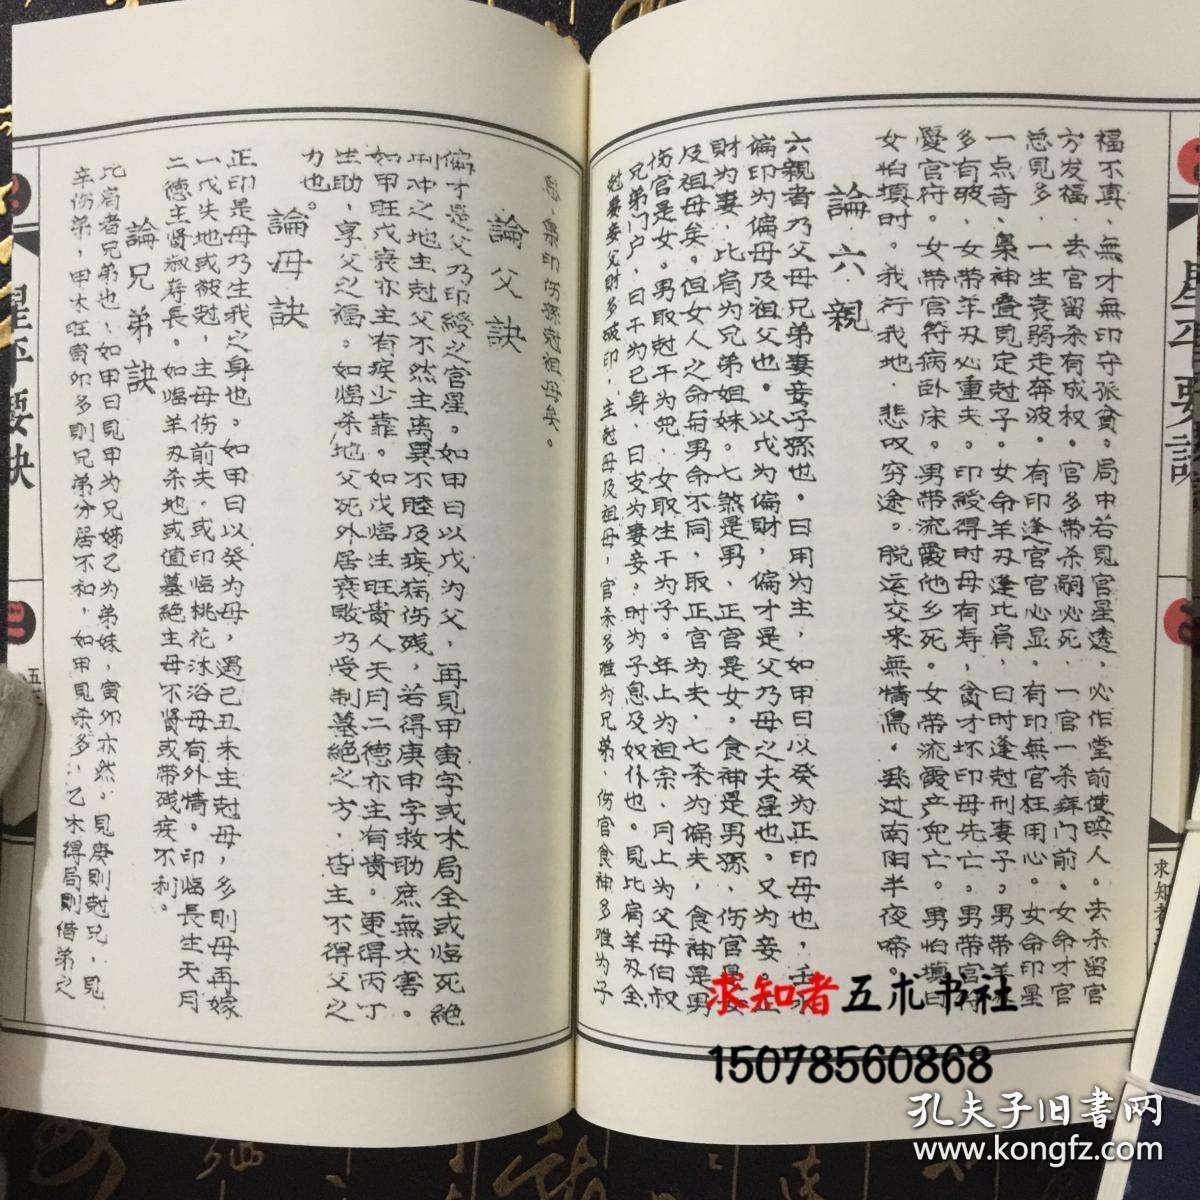 福不真，無才無印守張貧。局中若見官星透，必作堂前使喚人。去杀留官
方发福，去官留杀有成权。官多带杀嗣必死，一官一杀病门前。女命才官
总見多，一生衰弱走奔波。有印逢官官必显，有印無官枉用心。女命印星
一点奇，梟神叠見定尅子。女命羊刃逢比肩，日时逢尅刑妻子。男带羊
多有破，女带羊刃必重夫。印綬得时母有寿，貪才坏印母先亡。男带官符
愛官府。女带官符病卧床。男带流霞他乡死。女带流霞产兜亡。男怕填日
女怕填时。我行我地，悲叹穷途。脱运交来無情焉。过南阳半夜啼。
論六親
六親者乃父母兄弟妻妾子孫也。日用为主，如甲日以癸为正印母也，壬
偏印为偏母及祖父也。以戊为偏財，偏才是父乃母之夫星也。又为妾。
財为妻，比肩为兄弟姐妹。七煞是男，正官是女。食神是男孫，伤官是
及祖母矣。但女人之命與男命不同，取正官为夫，七杀为偏夫，食神是男
伤官是女。男取尅干为兜，女取生干为子。年上为祖宗，月上为父母伯叔
兄弟门户，日干为已身，日支为妻妾，时为子息及奴仆也。見比肩羊刃全
尅妻妾父財多破印，主尅母及祖母，官杀多难为兄弟，伤官食神多难为子
息，梟印伤孫尅祖母矣。
論父訣
偏才是父乃印綬之官星。如甲日以戊为父，再見甲寅字或木局全或临死絶
刑冲之地主尅父不然主离異不睦及疾病伤残，若得庚申字救助庶無大害。
如甲旺戊衰亦主有疾少靠。如戊临生旺贵人天月二德亦主有貴。更得丙丁
生助，享父之福。如临杀地父死外居衰败乃受制墓絶之方，皆主不得父之
力也。
論母訣
正印是母乃生我之身也。如甲日以癸为母，遇己丑未主尅母，多則母再嫁
一戊失地或被尅，主母伤前夫。或印临桃花沐浴母有外情。印临長生天月
二德主賢淑寿長。如临羊刃杀地或值墓絶主母不賢或带残疾不利。
論兄弟訣
比肩者兄弟也，如甲日見甲为兄姊乙为弟妹，寅卯亦然。見庚則尅兄，見
辛伤弟，甲木旺寅卯多則兄弟分居不和，如甲見杀多，乙木得局則借弟之
星平要訣
求知者五术书社
15078560868
孔夫子旧書网
www.kongfz.com